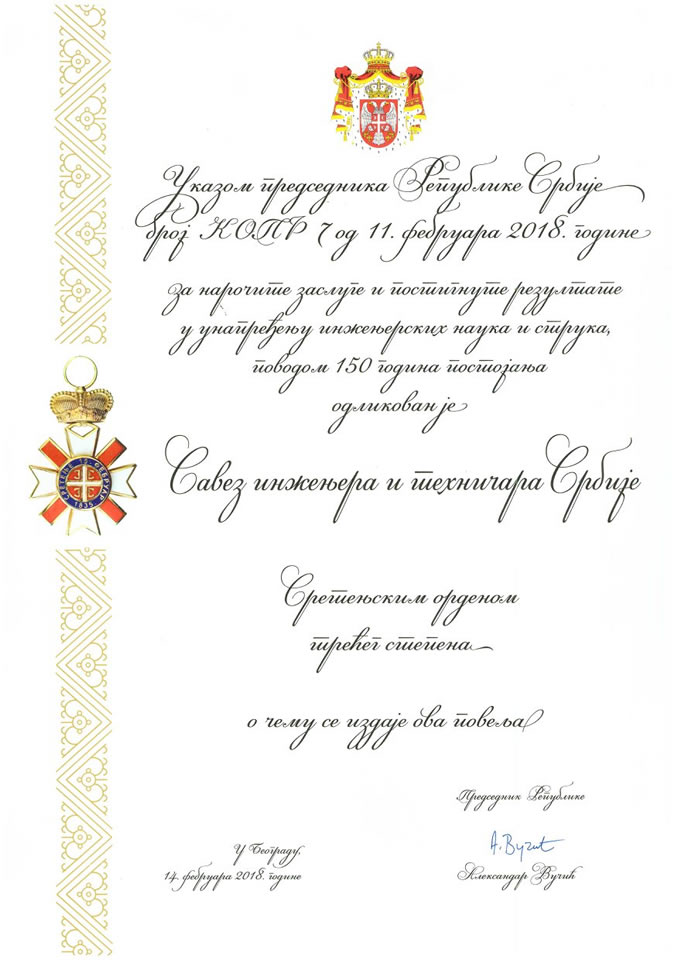 Указом председника Републике Србије
број КОПР 7 од 11. фебруара 2018. године
за нарочите заслуге и постигнуте резултате
у унапређењу инжењерских наука и струка,
поводом 150 година постојања
одликован је
Савез инжењера и техничара Србије
СРЕТЕЊЕ 15. ФЕБРУАР
1835
Сретењским орденом
трећег степена
о чему се издаје ова повеља
Председник Републике
У Београду,
14. фебруара 2018. године
А. Вучић
Александар Вучић